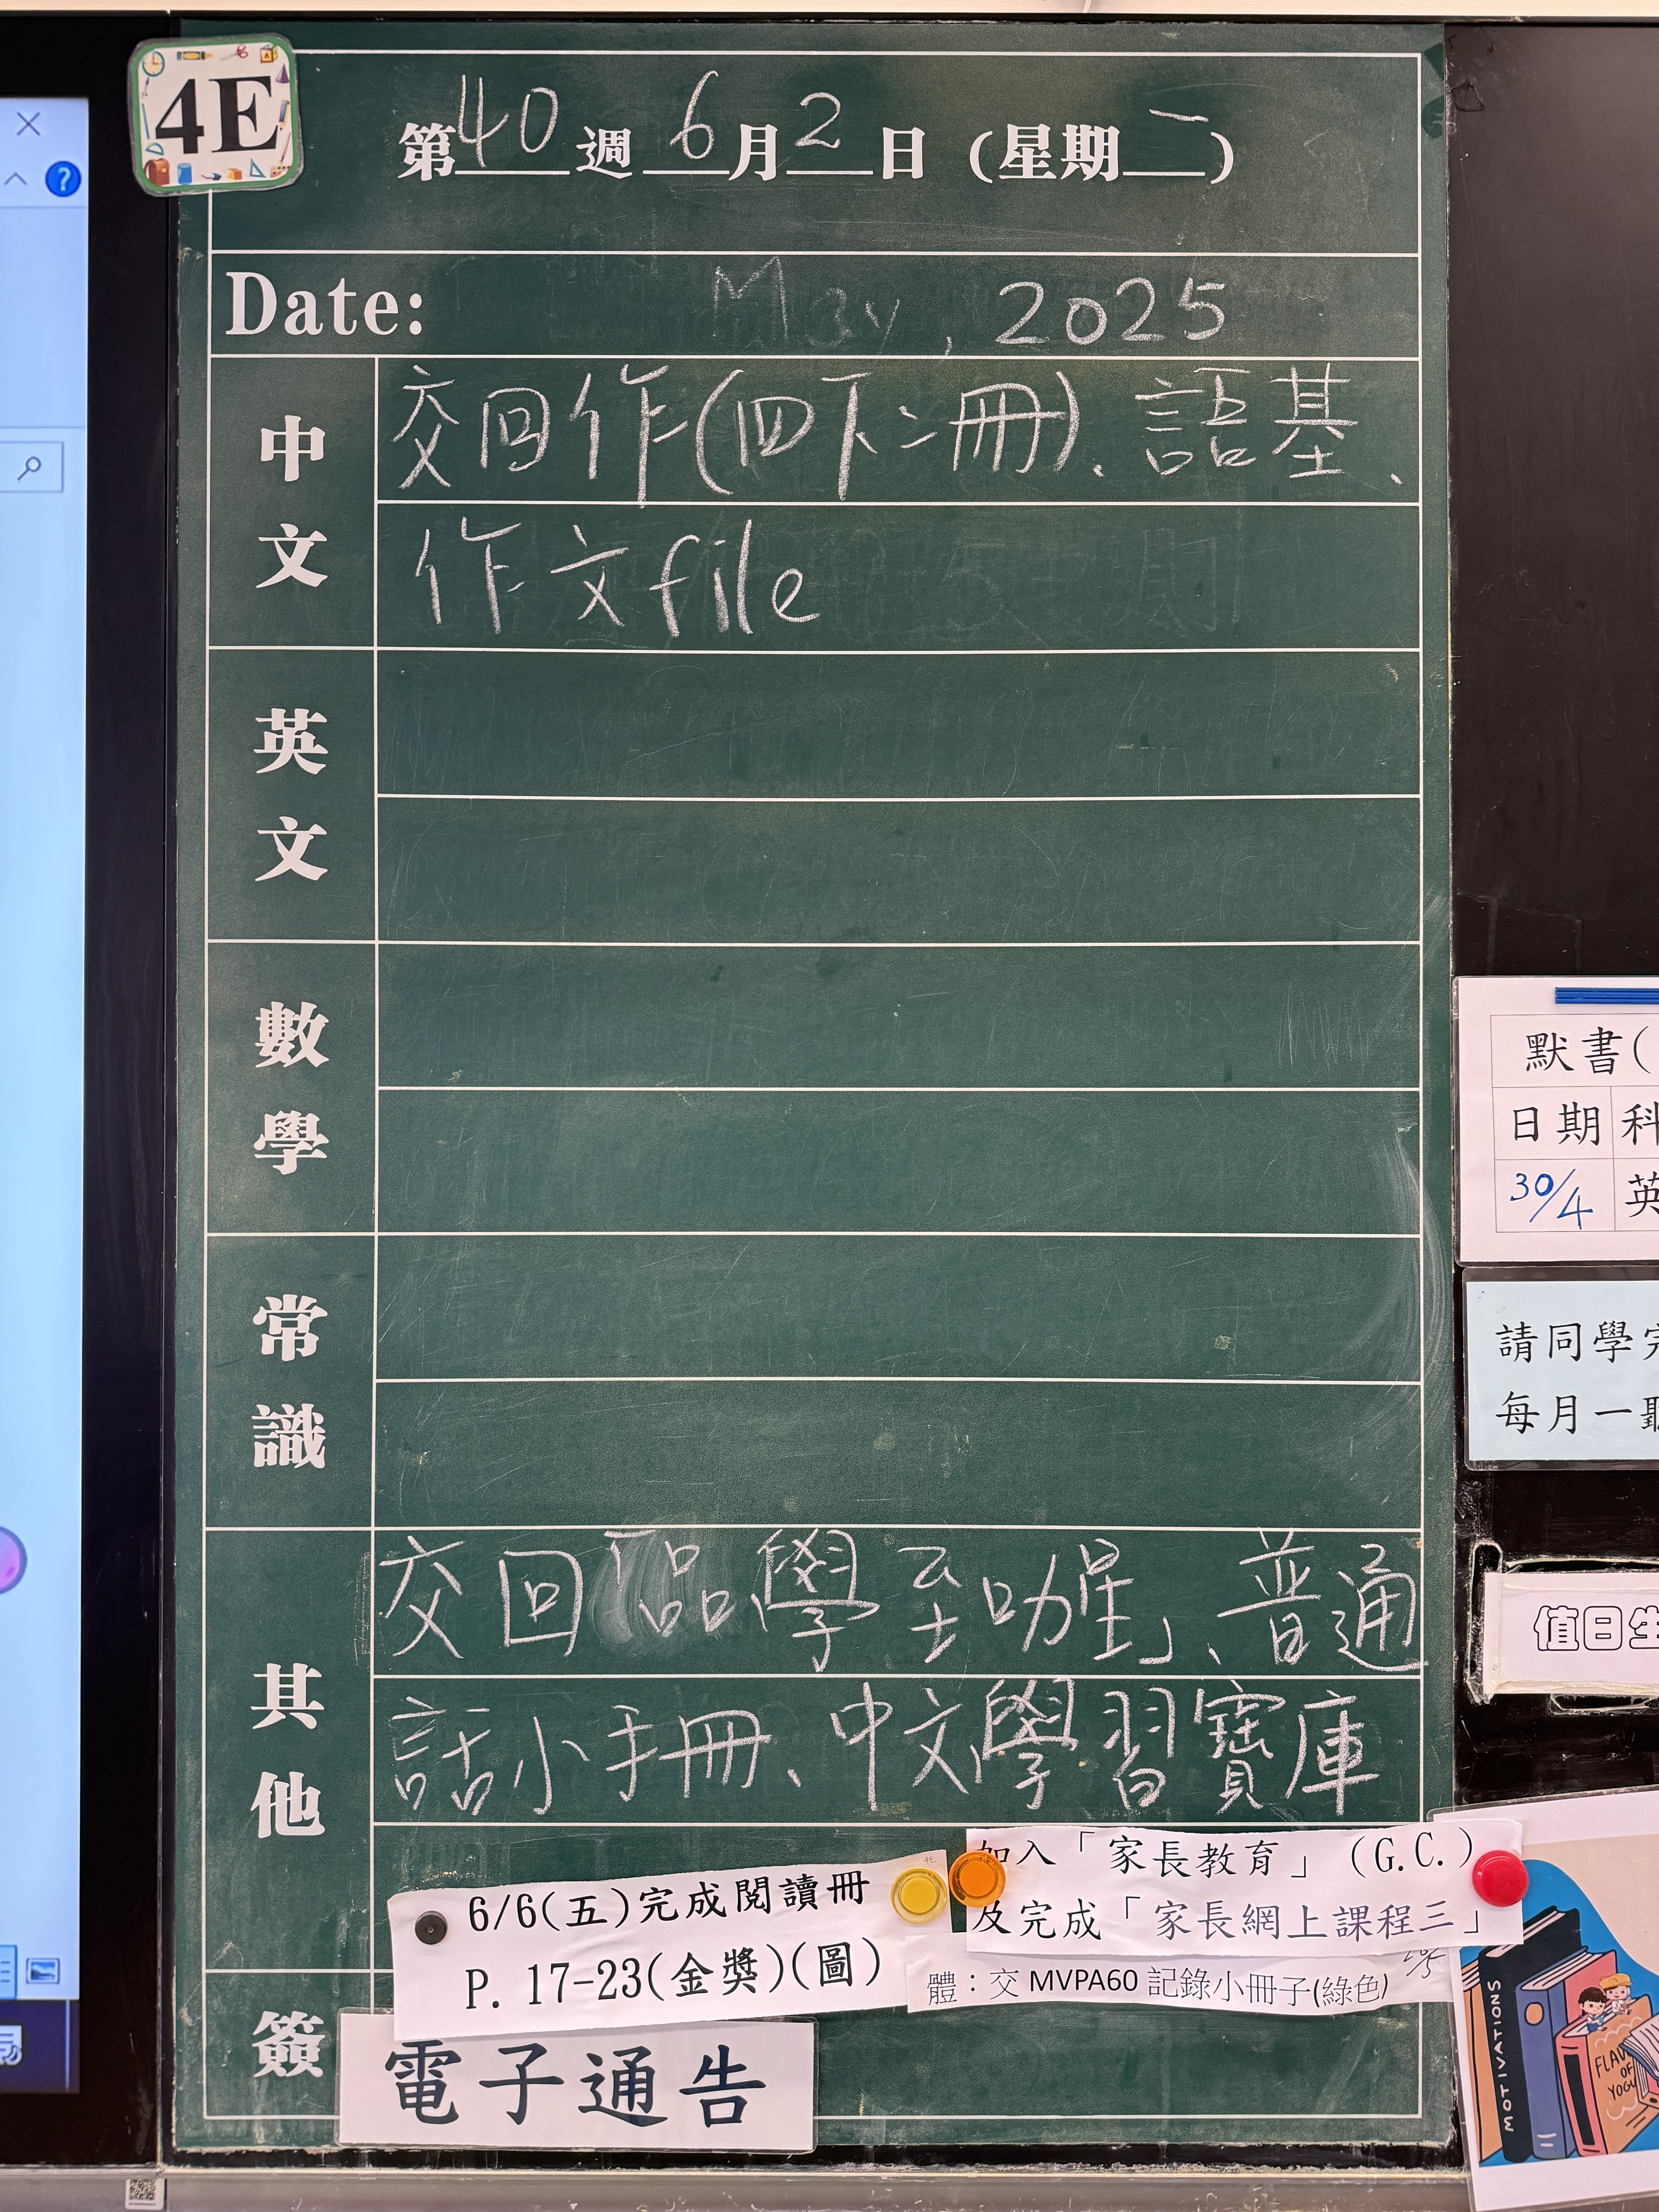 4E
第40週 6月2日 (星期一)
Date: May, 2025
中文
交回作(四下二冊)、語基、
作文file
英文
數學
常識
其他
交回「品學至叻星」、普通
話小手冊、中文學習寶庫
6/6(五)完成閱讀冊
P. 17-23(金獎)(圖)
加入「家長教育」(G.C.)
及完成「家長網上課程三」
體：交 MVPA60 記錄小冊子(綠色)
簽
電子通告
默書(
日期
30/4
英
請同學
每月一
值日生
MOTIVATIONS
OF